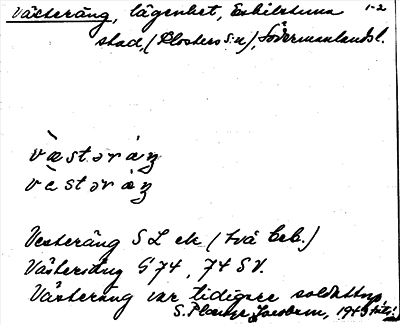 Västeräng, lägenhet, Eskilstuna 1-2
stad, (Klosters s:n), Södermanlands l.
væ̀stəræ̀ŋ
vɛ̀stəræ̀ŋ
Vesteräng SL ek (två beb.)
Västeräng G 74, 74 SV.
Västeräng var tidigare soldattorp
S. Jacobson, 1943